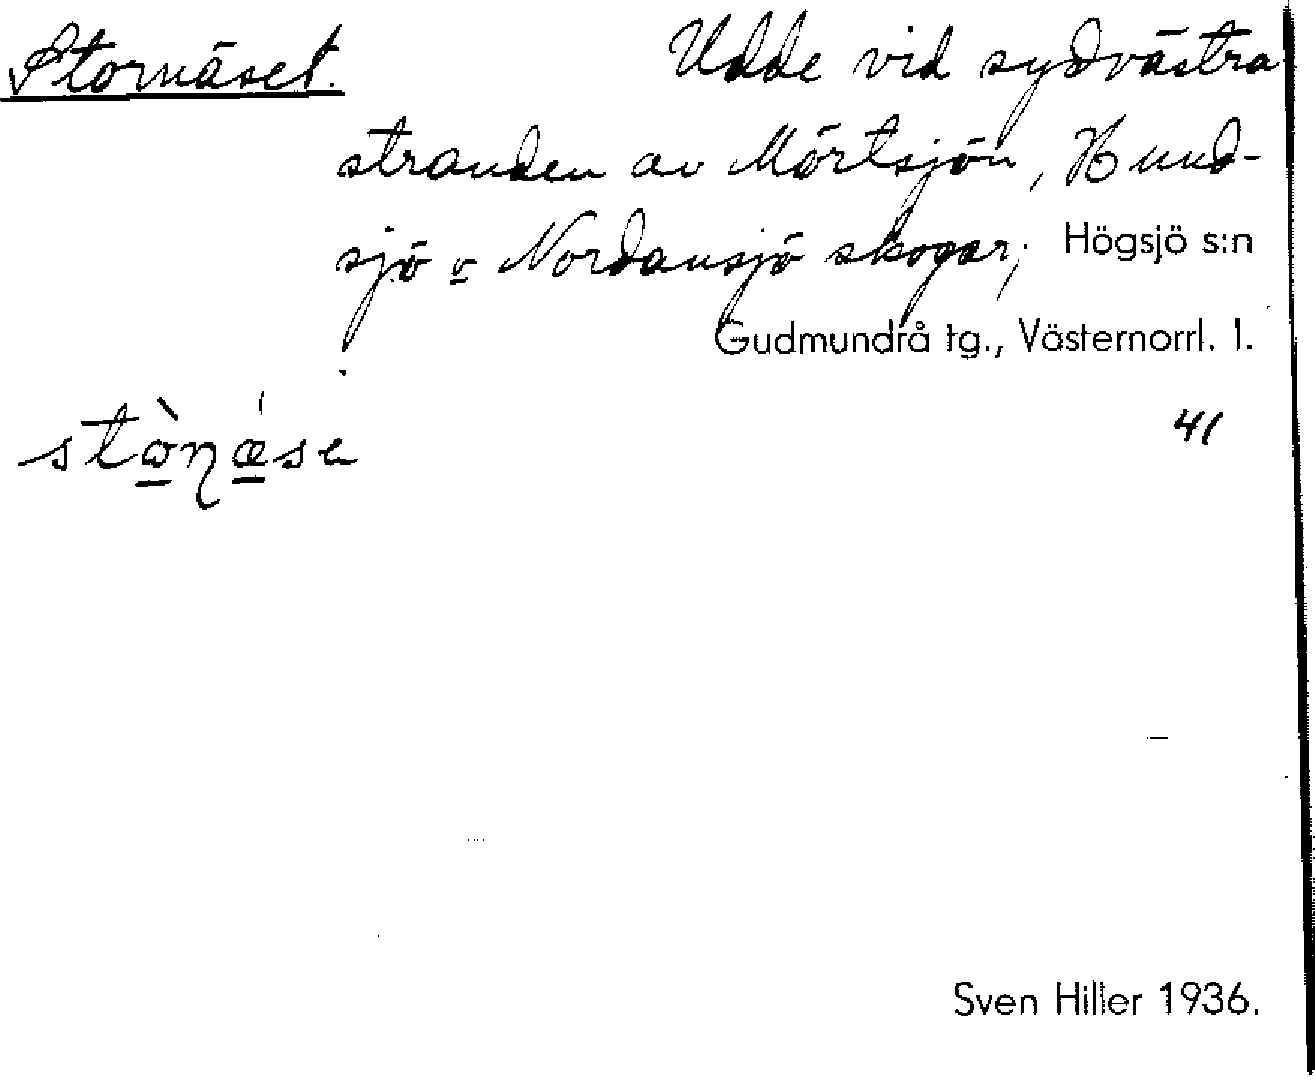 Stornäset. Udde vid sydvästra
stranden av Mörtsjön, Hund-
sjö o Nordansjö skogar; Högsjö s:n
Gudmundrå tg., Västernorrl. l.
41
Sven Hiller 1936.